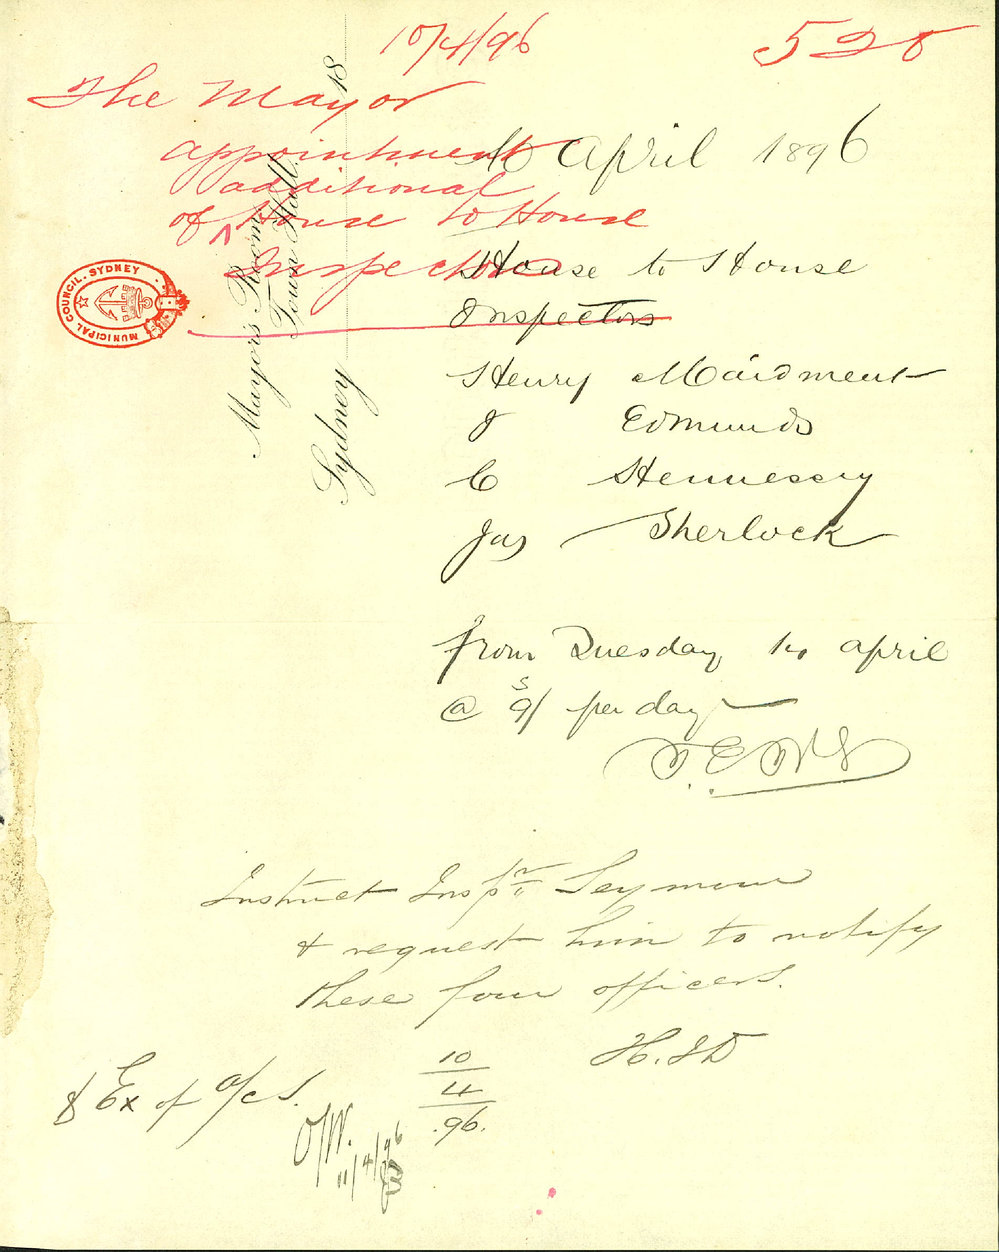 10/4/96
528
The Mayor
appointment
additional
of ^ House to House
Inspectors
Mayor's Room,
Town Hall.
Sydney 18
MUNICIPAL COUNCIL. SYDNEY
10 April 1896
House to House
Inspectors
Henry Maidment
J Edmunds
C Hennessy
Jas Sherlock
from Tuesday 14 april
@ 9/ s per day
Instruct Inspr Seymour
& request him to notify
these four officers.
H.S.D
10
4
96.
& Ex of a/cs.
11/4/96